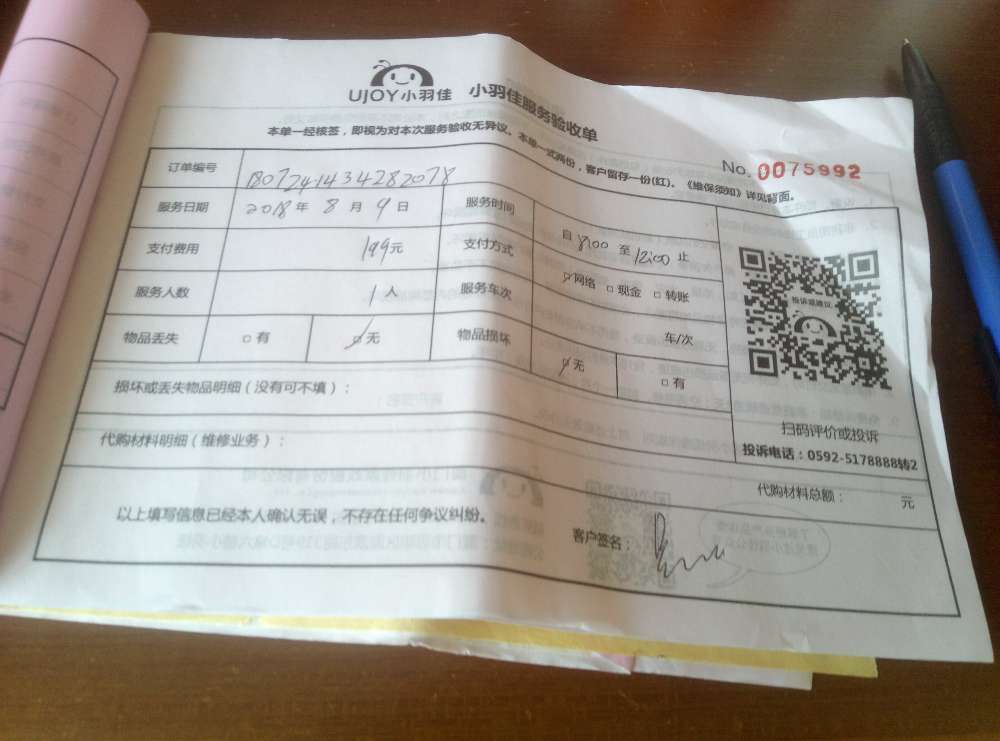 UJOY小羽佳 小羽佳服务验收单
本单一经核签，即视为对本次服务验收无异议。本单一式两份，客户留存一份(红)。《维保须知》详见背面。
No. 0075992
订单编号 1807241434282078
服务日期 2018 年 8 月 9 日 服务时间 自 8:00 至 12:00 止
支付费用 199元 支付方式 ☑网络 □现金 □转账
服务人数 1 人 服务车次 车/次
物品丢失 □有 ☑无 物品损坏 ☑无 □有
投诉或建议
扫码评价或投诉
投诉电话：0592-5178888转2
损坏或丢失物品明细（没有可不填）：
代购材料明细（维修业务）：
代购材料总额： 元
以上填写信息已经本人确认无误，不存在任何争议纠纷。
客户签名：